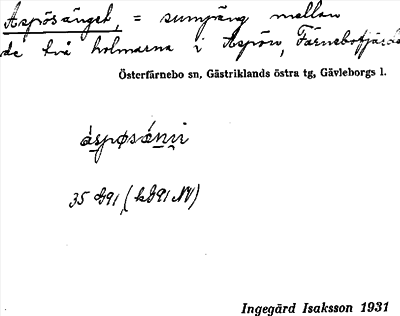 Aspösänget, = sumpäng mellan
de två holmarna i Aspön, Färnebofjärde
Österfärnebo sn, Gästriklands östra tg, Gävleborgs l.
áspøsǽnni
35 d91, (k891 NV)
Ingegärd Isaksson 1931